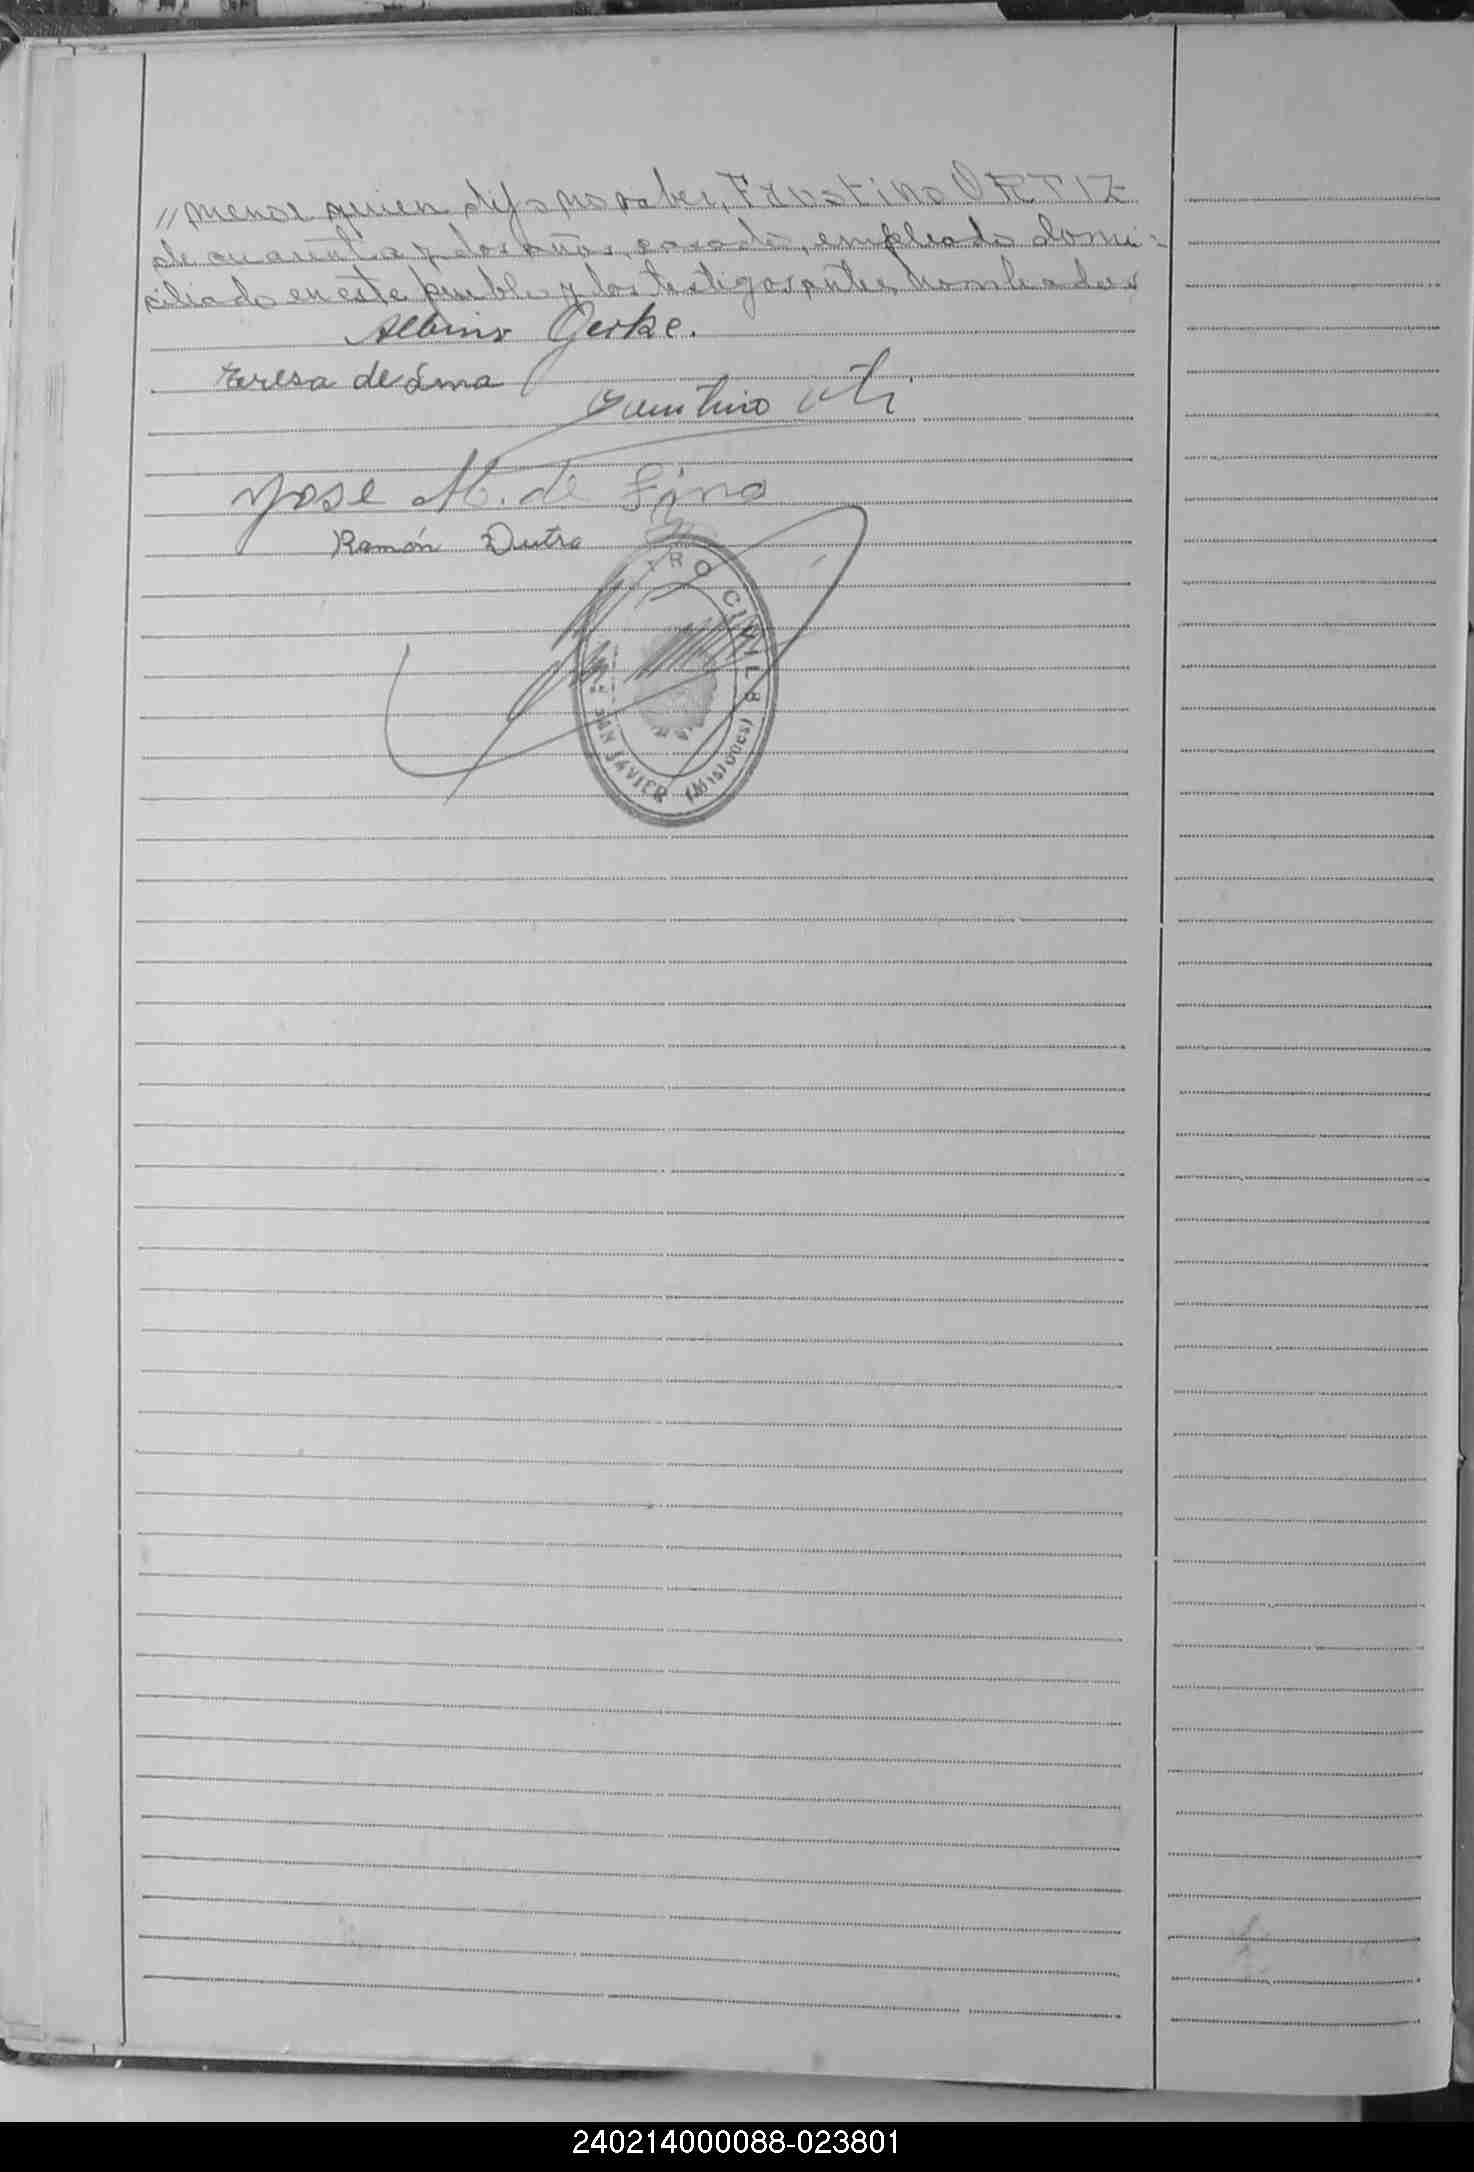 // menor quien dijo no saber, Faustino ORTIZ
de cuarenta y dos años, casado, empleado domi-
ciliado en este pueblo y los testigos antes nombrados
Albino Gerke.
Teresa de Lima
Faustino
Jose M. de Lima
Ramón Dutra
TRO CIVIL
SAN JAVIER (Misiones)
240214000088-023801